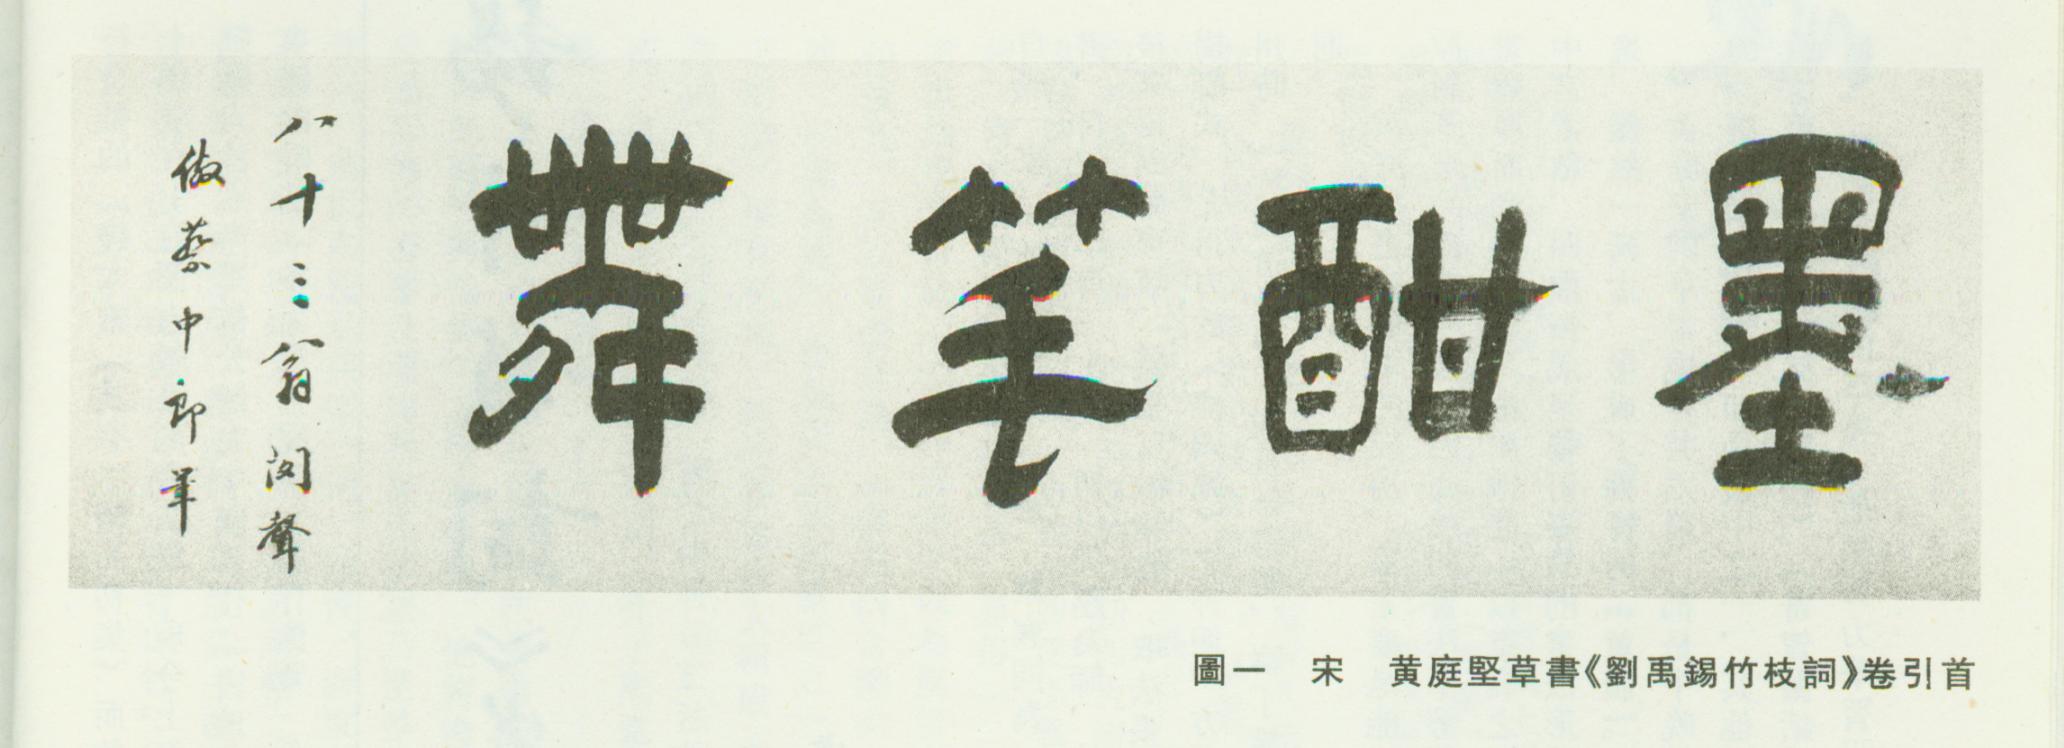 墨酣笔舞
八十三翁閔聲
倣蔡中郎筆
圖一　宋　黄庭堅草書《劉禹錫竹枝詞》卷引首